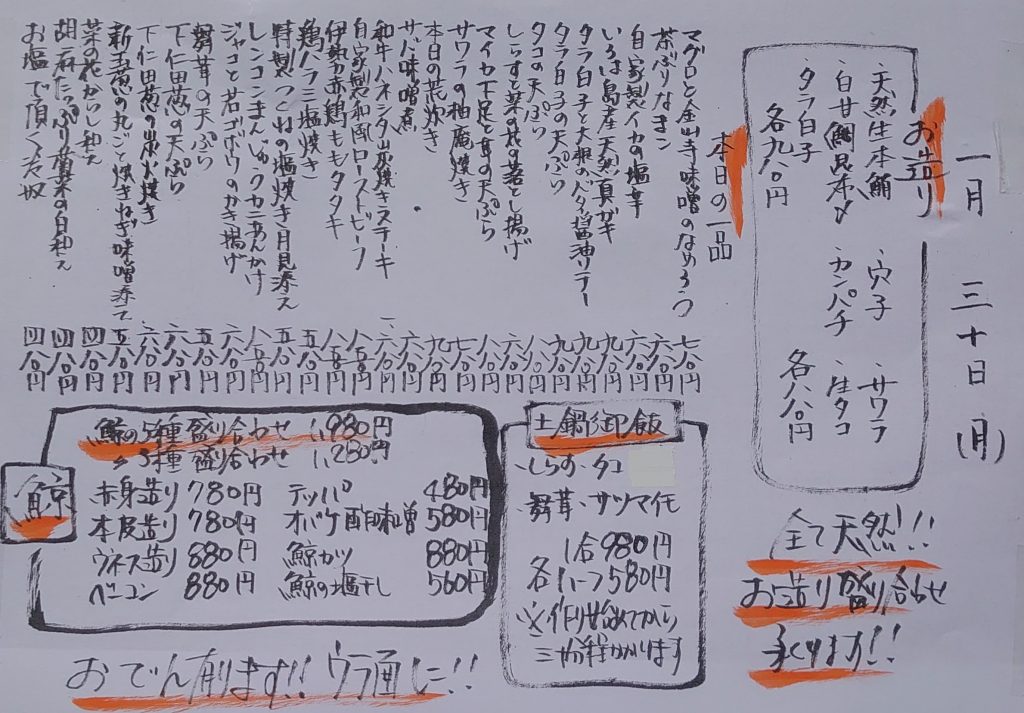 一月 三十日 (月)
お造り
天然生本鮪 ・穴子 ・サワラ
・白甘鯛昆布〆 カンパチ ・生タコ
・タラ白子 各八八〇円
各九八〇円
全て天然!!
お造り盛り合わせ
承ります!!
本日の一品
マグロと金山寺味噌のなめろう 七八〇円
茶ぶりなまこ 六八〇円
自家製イカの塩辛 六八〇円
いろは島産天然真ガキ
タラ白子と大根のバタ醤油ソテー 九八〇円
タラ白子の天ぷら 九八〇円
タコの天ぷら
しらすと菜の花の落とし揚げ 八八〇円
マイカ下足と
サワラの柚庵焼き
本日の荒炊き
サバ味噌煮 六八〇円
和牛ハネシタ山葵焼きステーキ
自家製和風ローストビーフ
伊勢赤鶏ももタタキ
鶏ハラミ塩焼き 五八〇円
特製つくねの塩焼き月見添え 五八〇円
レンコンまんじゅうカニあんかけ
ジャコと若ゴボウのかき揚げ 六八〇円
舞茸の天ぷら 五八〇円
下仁田葱の天ぷら 六八〇円
下仁田葱の炭火焼き 六八〇円
新玉葱の丸ごと焼きねぎ味噌添え 五八〇円
菜の花からし和え 四八〇円
胡麻たっぷり春菊の白和え 四八〇円
お塩で頂くただ奴 四八〇円
鯨
鯨の5種盛り合わせ 1,980円
〃 3種 盛り合わせ 1,280円
赤身造り 780円 テッパ 480円
本皮造り 780円 オバケ酢味噌 580円
ウネス造り 880円 鯨カツ 880円
ベーコン 880円 鯨の塩干し 560円
土鍋御飯
・しらす・タコ
・舞茸・サツマイモ
1合980円
各ハーフ580円
※作り始めてから
三十分程かかります
おでん有ります!! ウラ面に!!